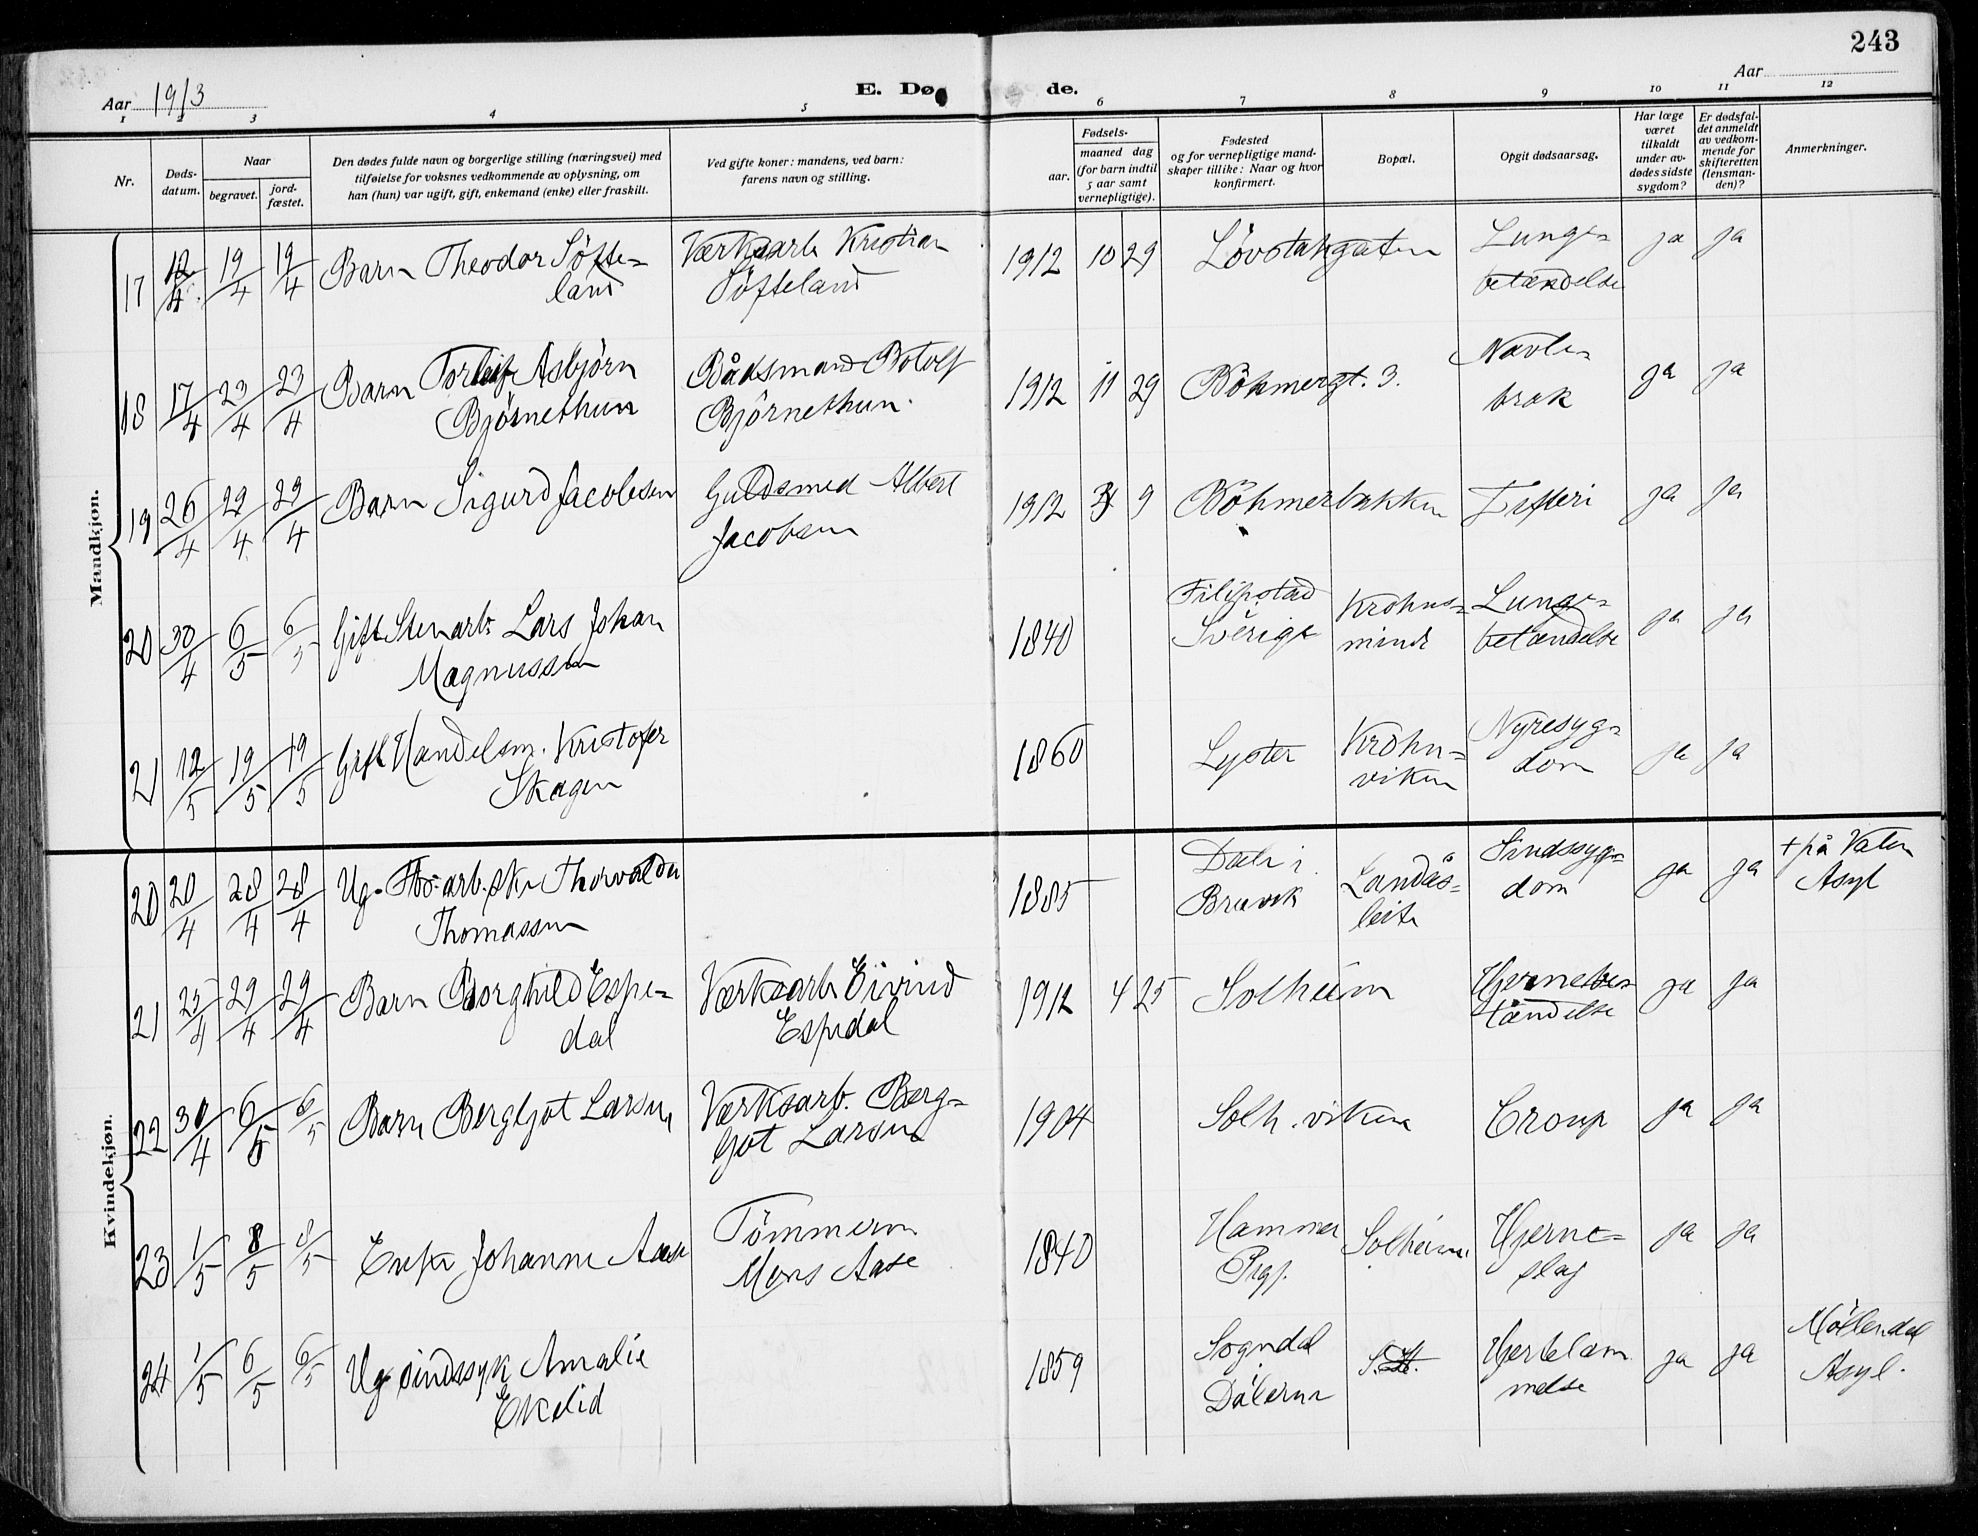 243
Aar 1913
E. Dø de.
Aar
1 2 3 4 5 6 7 8 9 10 11 12
Nr.
Døds-
datum.
Naar
begravet.
jord-
fæstet.
Den dødes fulde navn og borgerlige stilling (næringsvei) med
tilføielse for voksnes vedkommende av oplysning, om
han (hun) var ugift, gift, enkemand (enke) eller fraskilt.
Ved gifte koner: mandens, ved barn:
farens navn og stilling.
Fødsels-
aar.
maaned dag
(for barn indtil
5 aar samt
vernepligtige).
Fødested
og for vernepligtige mand-
skaper tillike: Naar og hvor
konfirmert.
Bopæl.
Opgit dødsaarsag.
Har læge
været
tilkaldt
under av-
dødes sidste
sygdom?
Er dødsfal-
det anmeldt
av vedkom-
mende for
skifteretten
(lensman-
den)?
Anmerkninger.
Mandkjøn.
17 12/4 19/4 19/4 Barn Theodor Söfte- Værksarb Kristian 1912 10 29 Lövstakgaten Lunge- ja ja
land Söfteland betændelse
18 17/4 23/4 23/4 Barn Torleif Asbjörn Bådsmand Botolf 1912 11 29 Böhmergt. 3. Navle- ja ja
Björnethun Björnethun. brok
19 26/4 29/4 29/4 Barn Sigurd Jacobsen Guldsmed Albert 1912 9 Böhmerbakken Difteri ja ja
Jacobsen
20 30/4 6/5 6/5 Gift Stenarb. Lars Johan 1840 Filipstad Krohns- Lunge- ja ja
Magnussen Sverige minde betændelse
21 12/5 19/5 19/5 Gift Handelsm. Kristofer 1860 Lyster Krohn- Nyresyg- ja ja
Skagen viken dom
Kvindekjøn.
20 20/4 28/4 28/4 Ug. arb.ske Thorvalda 1885 Dale i Landås- Sindssyg- ja ja + på Valen
Thomassen Bruvik leite dom Asyl
21 25/4 29/4 29/4 Barn Borghild Espe- Værksarb Eivind 1912 4 25 Solheim Hjernebe- ja ja
dal Espedal tændelse
22 30/4 6/5 6/5 Barn Bergljot Larsen Værksarb. Berg- 1904 Solh.viken Croup ja ja
ljot Larsen
23 1/5 8/5 8/5 Enke Johanne Aase Tömmerm 1840 Hammer Solheim Hjerne- ja ja
Mons Aase Prgj. slag
24 1/5 6/5 6/5 Ug sindssyk Amalie 1859 Sogndal Hjertelam ja ja Möllendal
Ekelid Dalerne melse Asyl.